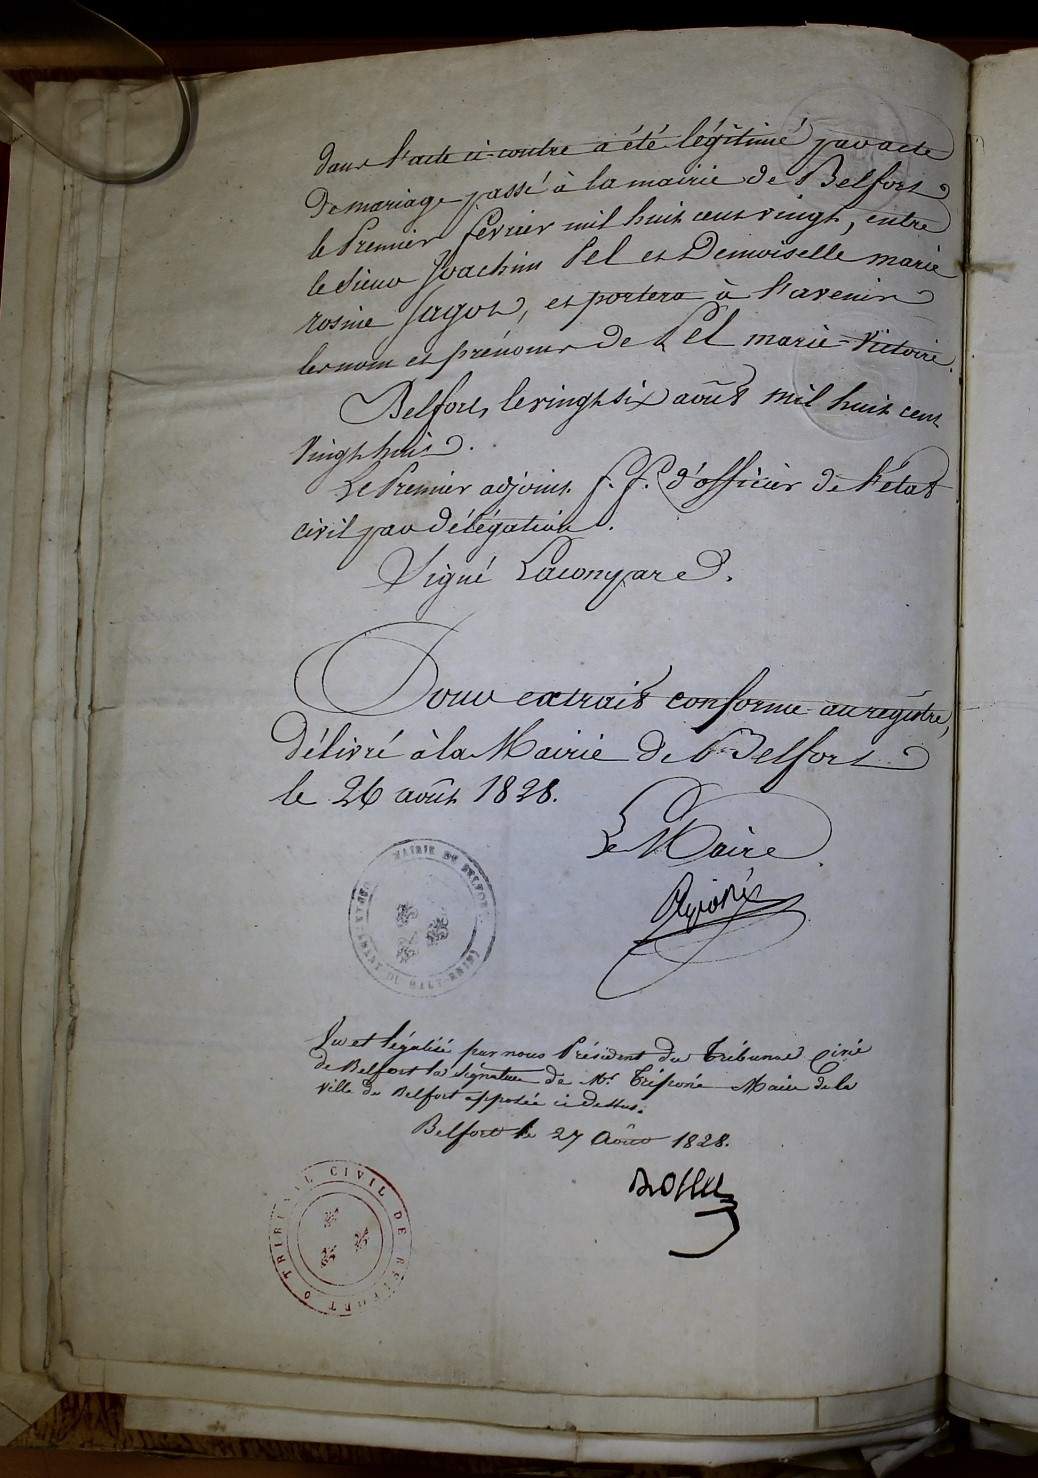 dans l'acte ci-contre a été légitimé par acte
De mariage passé à la mairie de Belfort
le Premier février mil huit cent vingt, entre
le Sieur Joachim Pel et Demoiselle marie
rosine Jagot, et portera à l'avenir
les nom et prénoms de Pel marie-Victoire.
Belfort, le vingt six août mil huit cent
vingt huit.
Le Premier adjoint f. f. d'officier de l'état
civil par délégation.
Signé Lacompard.
Pour extrait conforme au registre,
Délivré à la Mairie de Belfort
le 26 août 1828.
Le Maire
MAIRIE DE BELFORT
DÉPARTEMENT DU HAUT-RHIN
Vu et légalisé par nous Président du Tribunal Civil
de Belfort la signature de Mr. Maire de la
ville de Belfort apposée ci dessus.
Belfort le 27 Août 1828.
TRIBUNAL CIVIL DE BELFORT